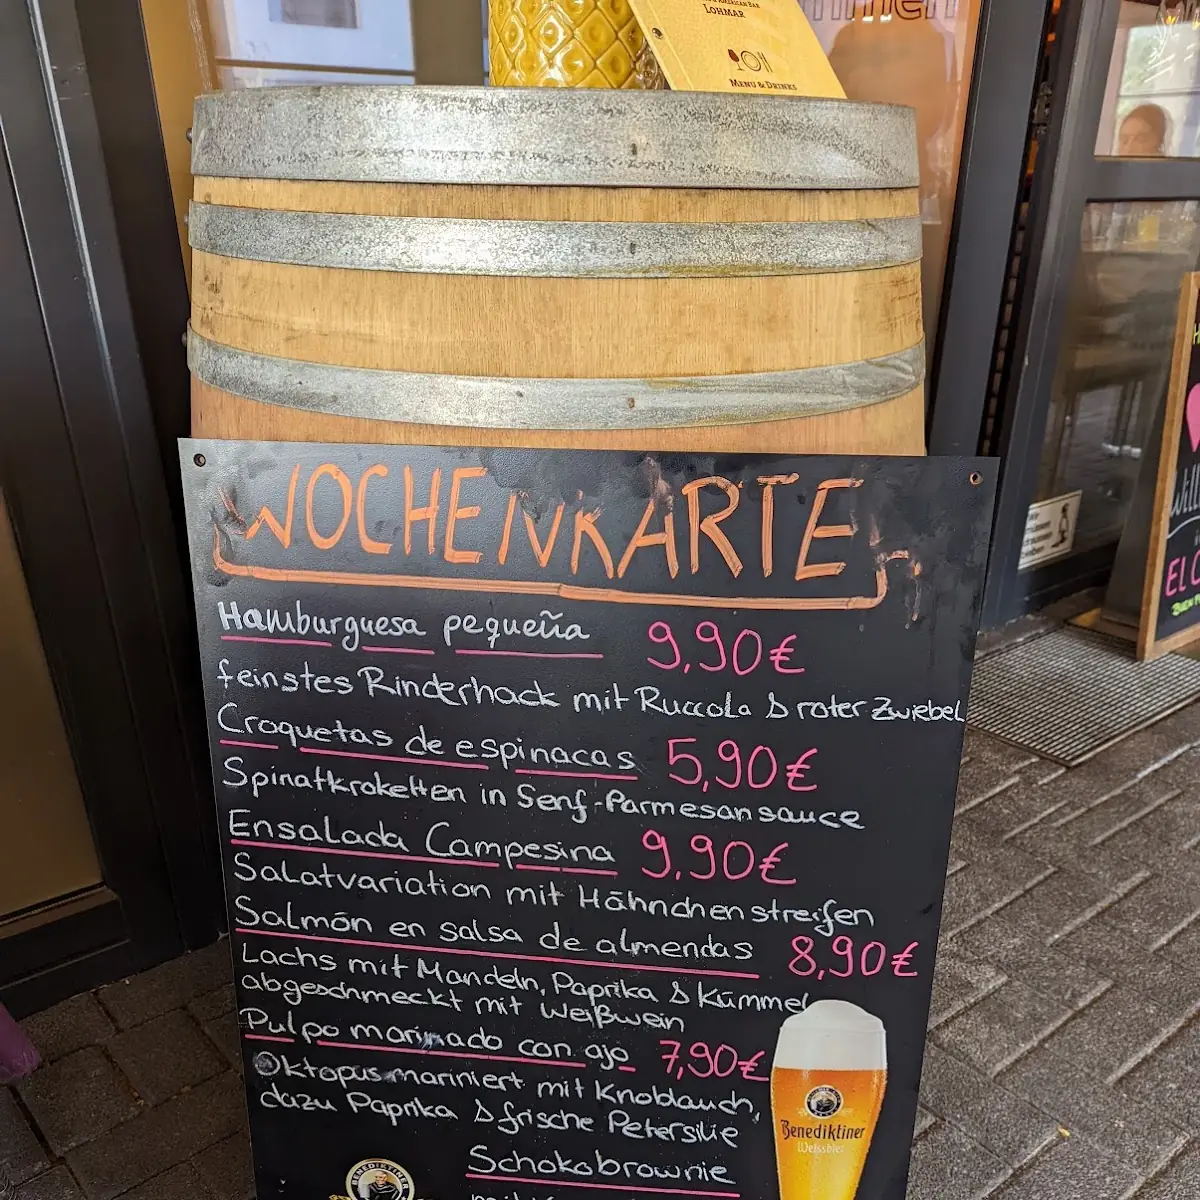 & AMERICAN BAR
LOHMAR
MENU & DRINKS
WOCHENKARTE
Hamburguesa pequeña 9,90€
feinstes Rinderhack mit Ruccola & roter Zwiebel
Croquetas de espinacas 5,90€
Spinatkroketten in Senf-Parmesansauce
Ensalada Campesina 9,90€
Salatvariation mit Hähnchenstreifen
Salmón en salsa de almendas 8,90€
Lachs mit Mandeln, Paprika & Kümmel
abgeschmeckt mit Weißwein
Pulpo marinado con ajo 7,90€
Oktopus mariniert mit Knoblauch,
dazu Paprika & frische Petersilie
Schokobrownie
Benediktiner
Weissbier
BENEDIKTINER
EL